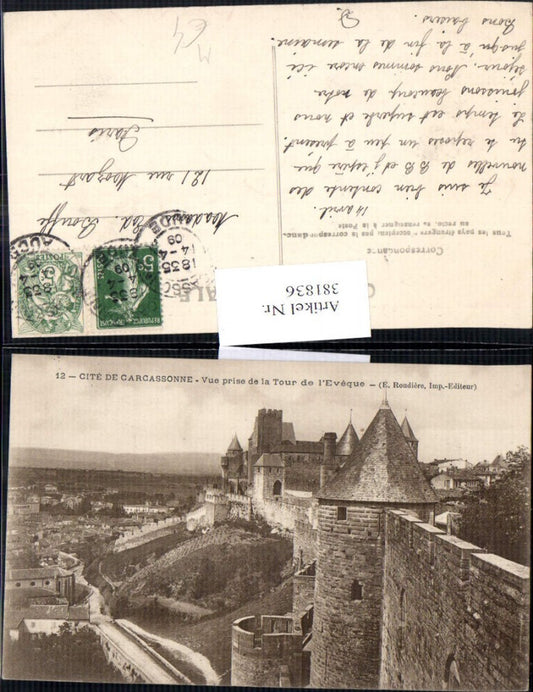 Correspondance
Tous les pays étrangers n'acceptent pas la correspondance
au recto, se renseigner à la Poste
14 avril.
Je suis bien contente des
nouvelles de BB et j'espère que
tu te reposes un peu à présent.
Le temps est superbe et nous
jouissons beaucoup de notre
séjour. Nous sommes encore ici
jusqu'à la fin de la semaine.
Bons baisers.
Madame Ed.
121 rue Mozart
Paris
AUDE
14-4
09
REPUBLIQUE FRANÇAISE
5
ALE
Artikel Nr.
381836
12 — CITÉ DE CARCASSONNE - Vue prise de la Tour de l'Evêque — (E. Roudière, Imp.-Editeur)